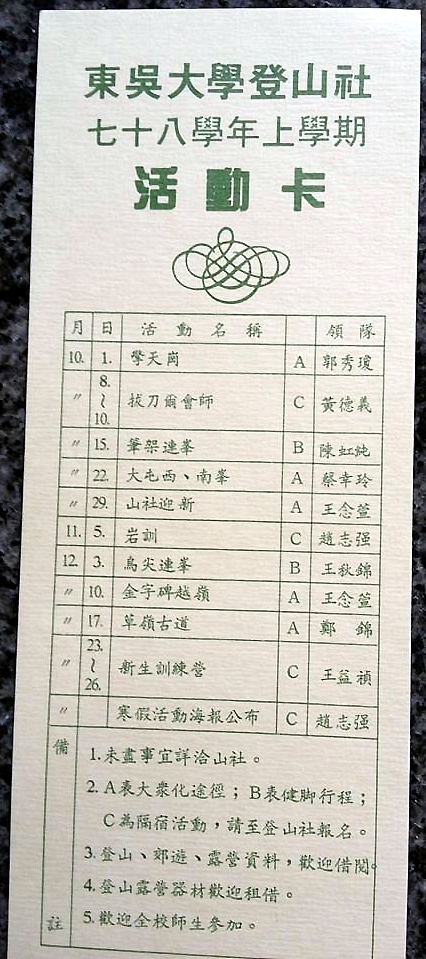 東吳大學登山社
七十八學年上學期
活動卡
月 日 活動名稱 領隊
10. 1. 擎天崗 A 郭秀瓊
〃 8.~10. 拔刀爾會師 C 黃德義
〃 15. 筆架連峯 B 陳虹純
〃 22. 大屯西、南峯 A 蔡幸玲
〃 29. 山社迎新 A 王念萱
11. 5. 岩訓 C 趙志强
12. 3. 鳥尖連峯 B 王秋錦
〃 10. 金字碑越嶺 A 王念萱
〃 17. 草嶺古道 A 鄭錦
〃 23.~26. 新生訓練營 C 王益禎
〃 寒假活動海報公布 C 趙志强
備註
1.未盡事宜詳洽山社。
2.A表大衆化途徑；B表健脚行程；
C為隔宿活動，請至登山社報名。
3.登山、郊遊、露營資料，歡迎借閱。
4.登山露營器材歡迎租借。
5.歡迎全校師生參加。